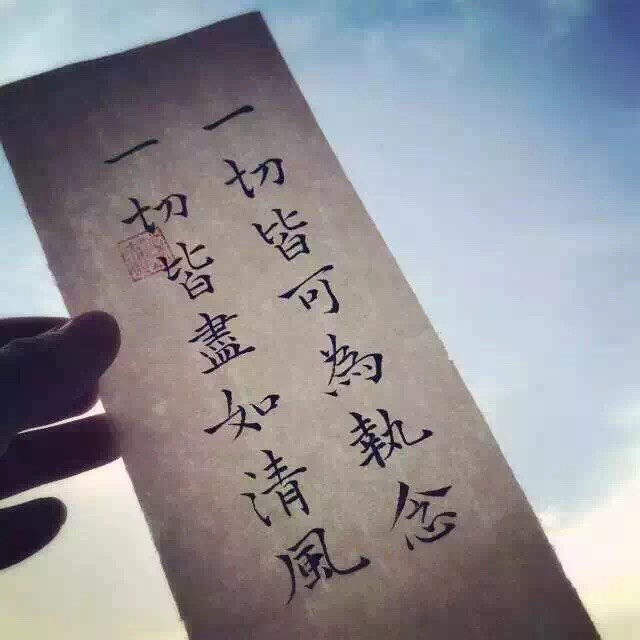 一切皆可為執念
一切皆盡如清風